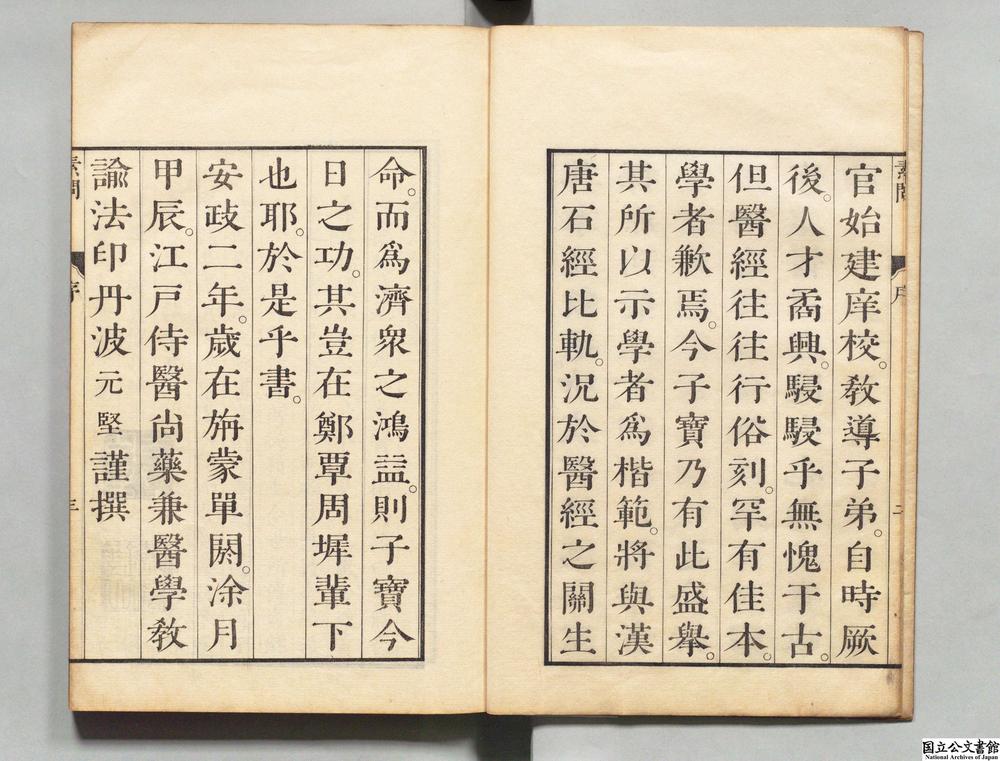 官始建庠校。敎導子弟。自時厥
後。人才矞興。駸駸乎無愧于古。
但醫經往往行俗刻。罕有佳本。
學者歉焉。今子寶乃有此盛擧。
其所以示學者爲楷範。將與漢
唐石經比軌。況於醫經之關生
命。而爲濟衆之鴻益。則子寶今
日之功。其豈在鄭覃周墀輩下
也耶。於是乎書。
安政二年。歲在旃蒙單閼。涂月
甲辰。江戸侍醫尙藥兼醫學敎
諭法印丹波元堅謹撰
素問
序
素問
序
国立公文書館
National Archives of Japan